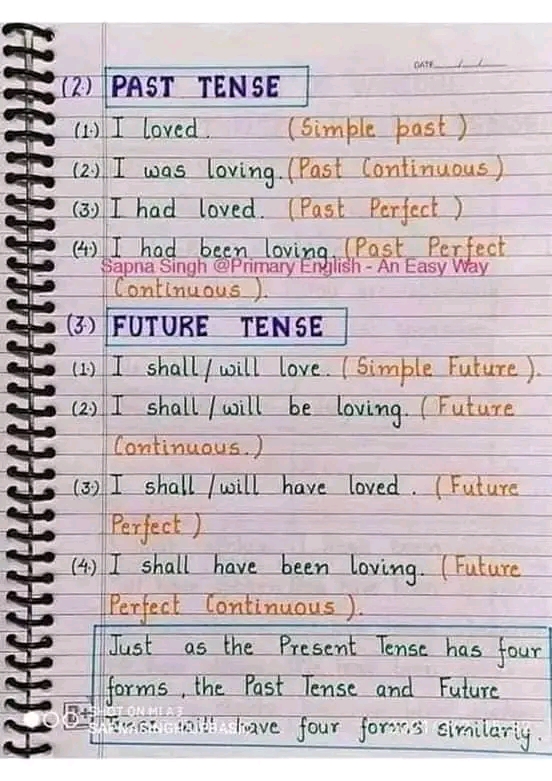 DATE / /
(2.) PAST TENSE
(1.) I loved. (Simple past)
(2.) I was loving. (Past Continuous)
(3.) I had loved. (Past Perfect)
(4.) I had been loving (Past Perfect
Sapna Singh @Primary English - An Easy Way
Continuous).
(3.) FUTURE TENSE
(1.) I shall/will love. (Simple Future).
(2.) I shall/will be loving. (Future
Continuous.)
(3.) I shall/will have loved. (Future
Perfect)
(4.) I shall have been loving. (Future
Perfect Continuous).
Just as the Present Tense has four
forms, the Past Tense and Future
SHOT ON MI A3
will have four forms similarly.